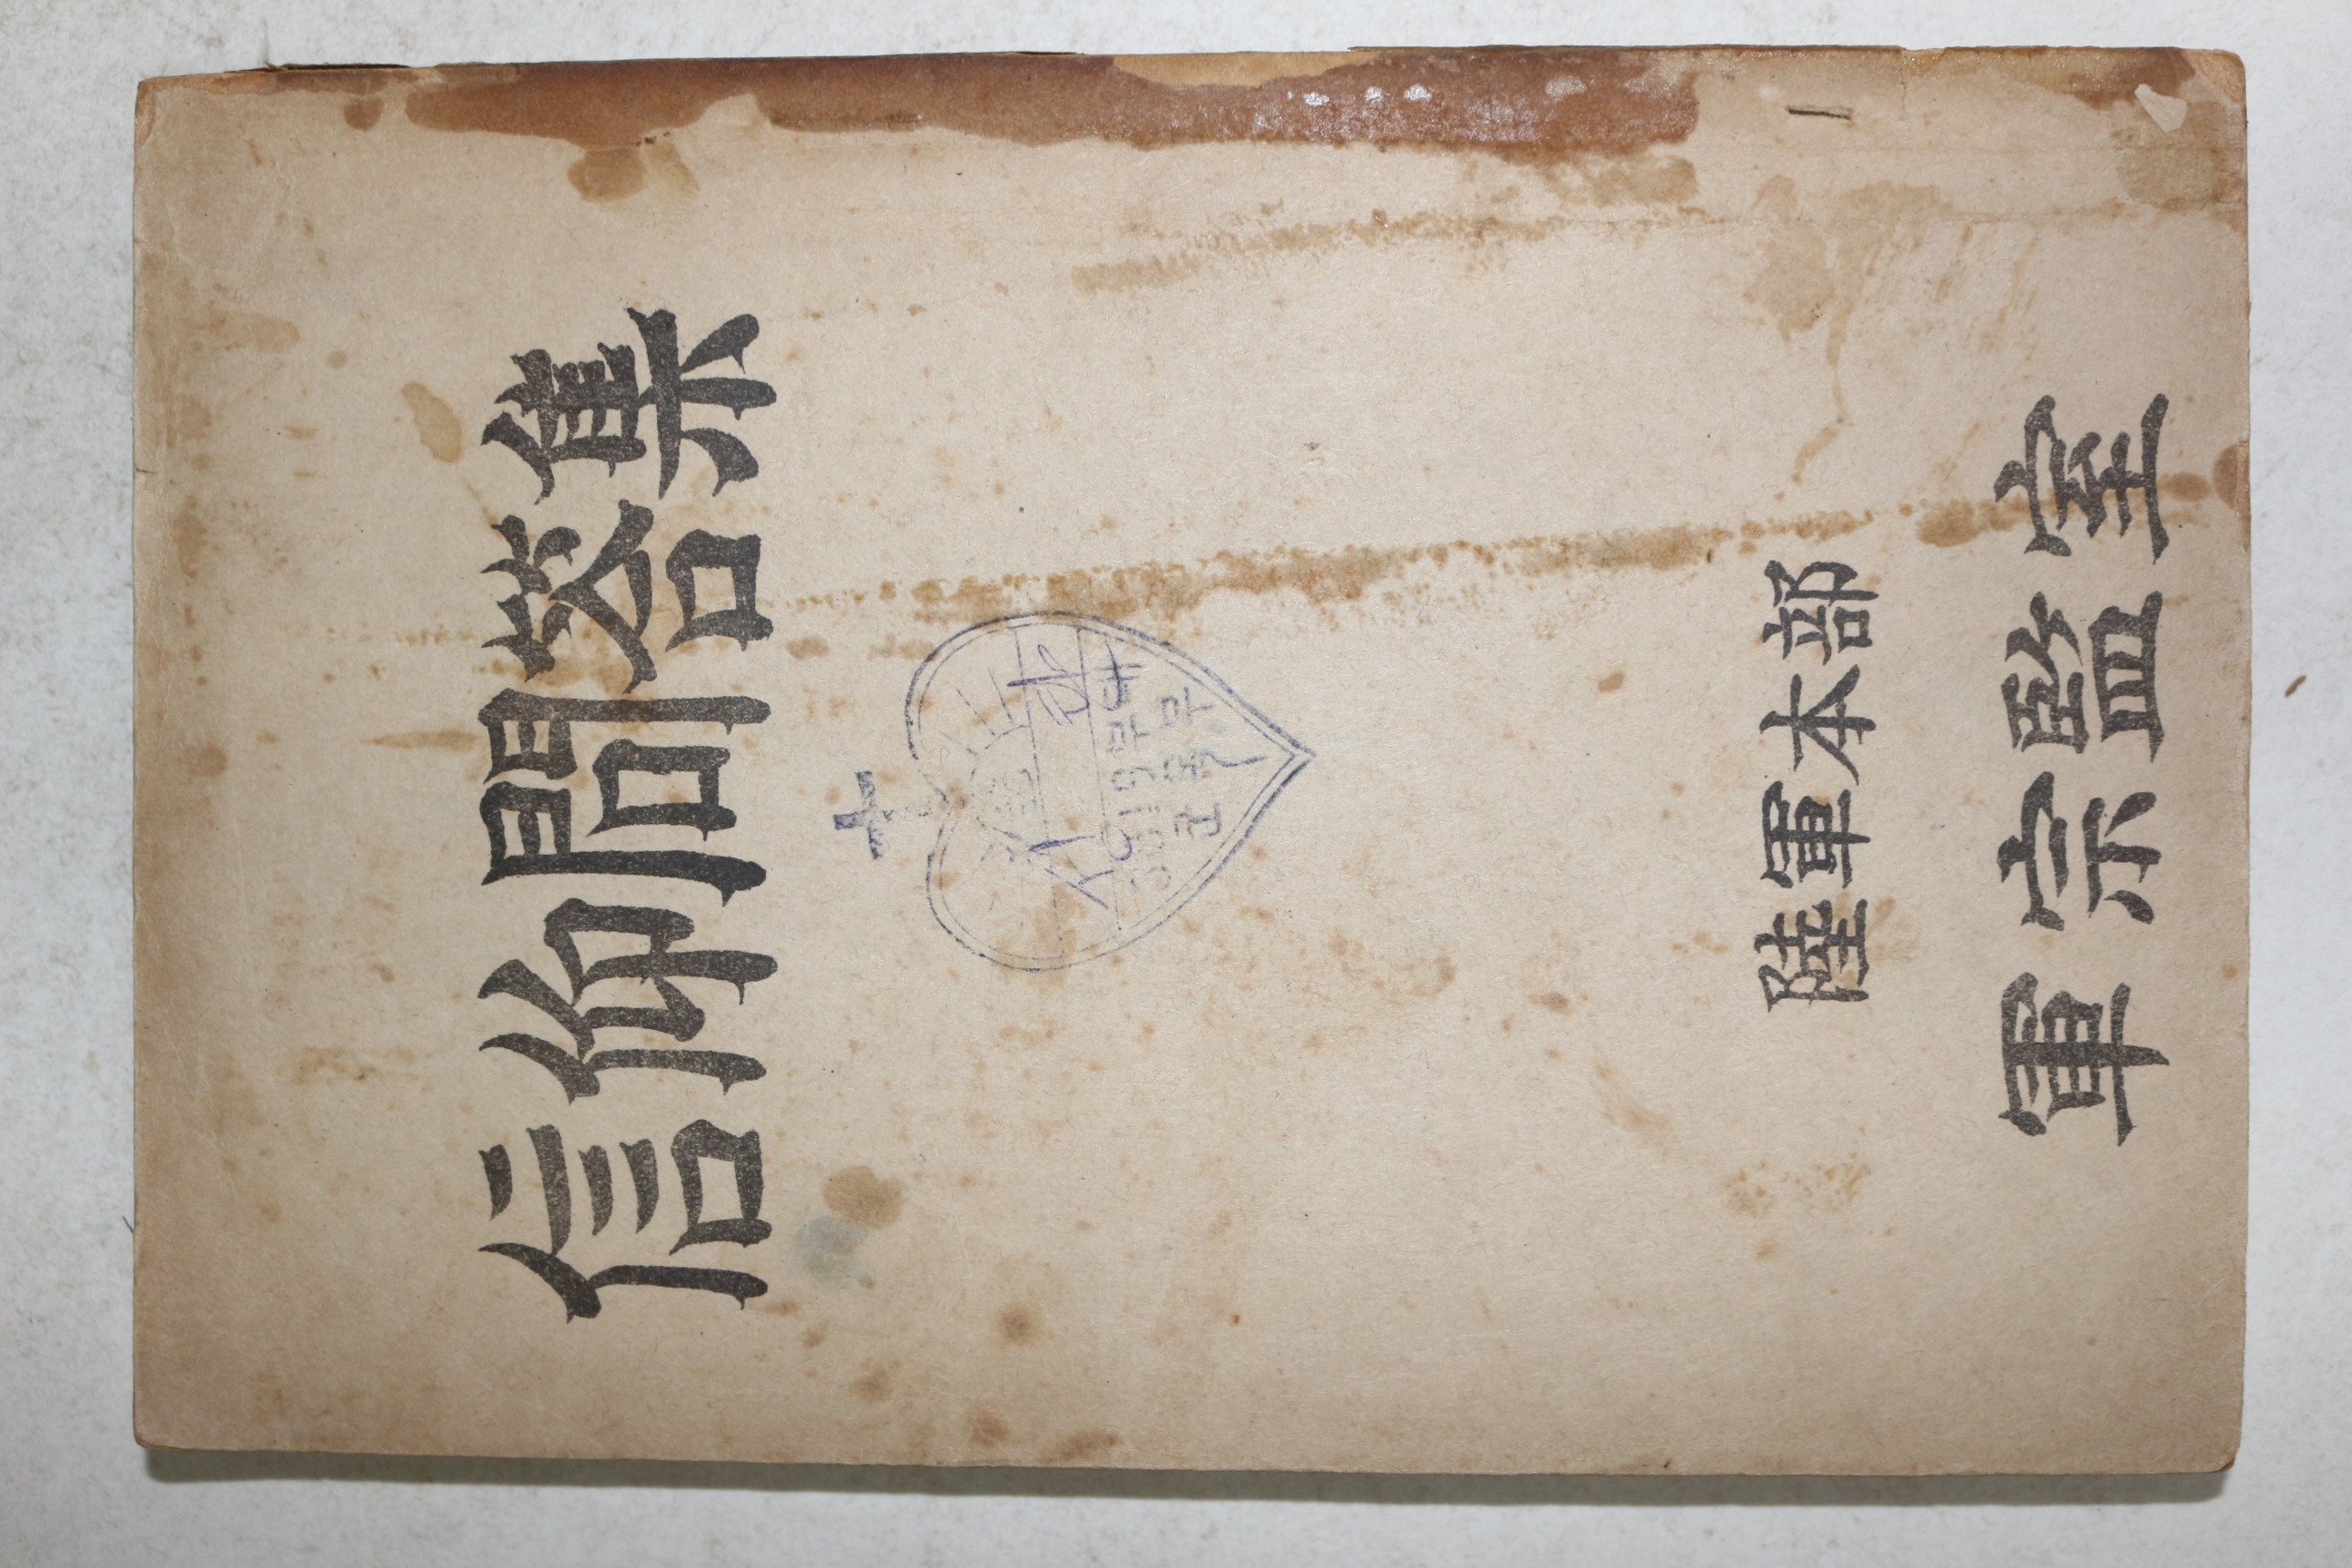 信仰問答集
陸軍本部
軍宗監室